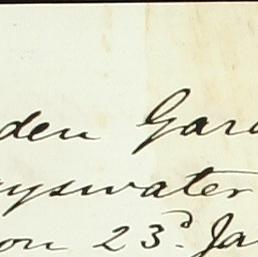 den Gar
yswater
on 23d. Ja